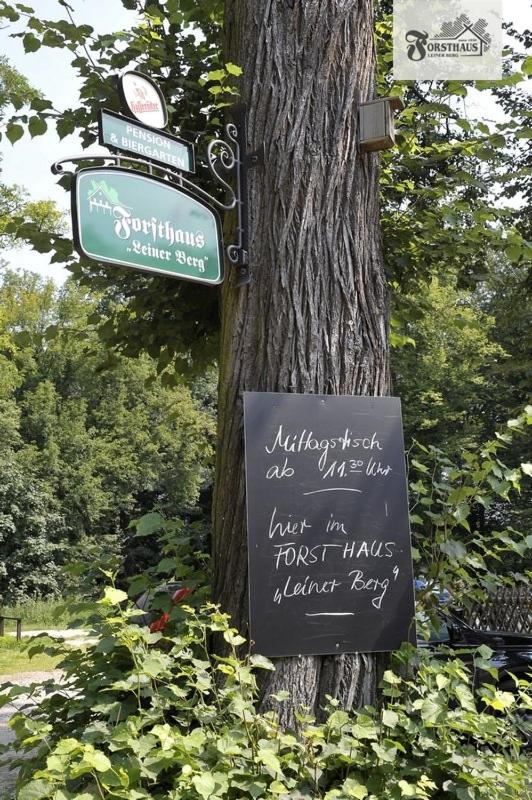 FORSTHAUS
LEINER BERG
Hasseröder
PENSION
& BIERGARTEN
Forsthaus
„Leiner Berg“
Mittagstisch
ab 11.30 Uhr
hier im
FORSTHAUS
„Leiner Berg“